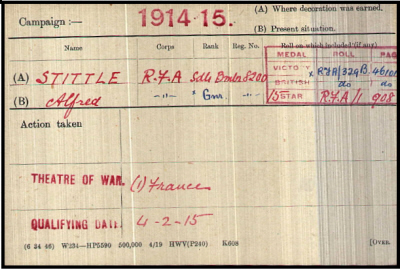 (A) Where decoration was earned.
Campaign :— 1914-15.
(B) Present situation.
Name Corps Rank Reg. No. Roll on which included (if any)
MEDAL ROLL PAGE
(A) STITTLE R.F.A 8200 VICTORY RFA/329B
BRITISH do do
(B) Alfred -"- Gnr 15 STAR R.F.A/1 908
Action taken
THEATRE OF WAR. (1) France
QUALIFYING DATE. 4-2-15
(6 34 46) W234—HP5590 500,000 4/19 HWV(P240) K608 [OVER.